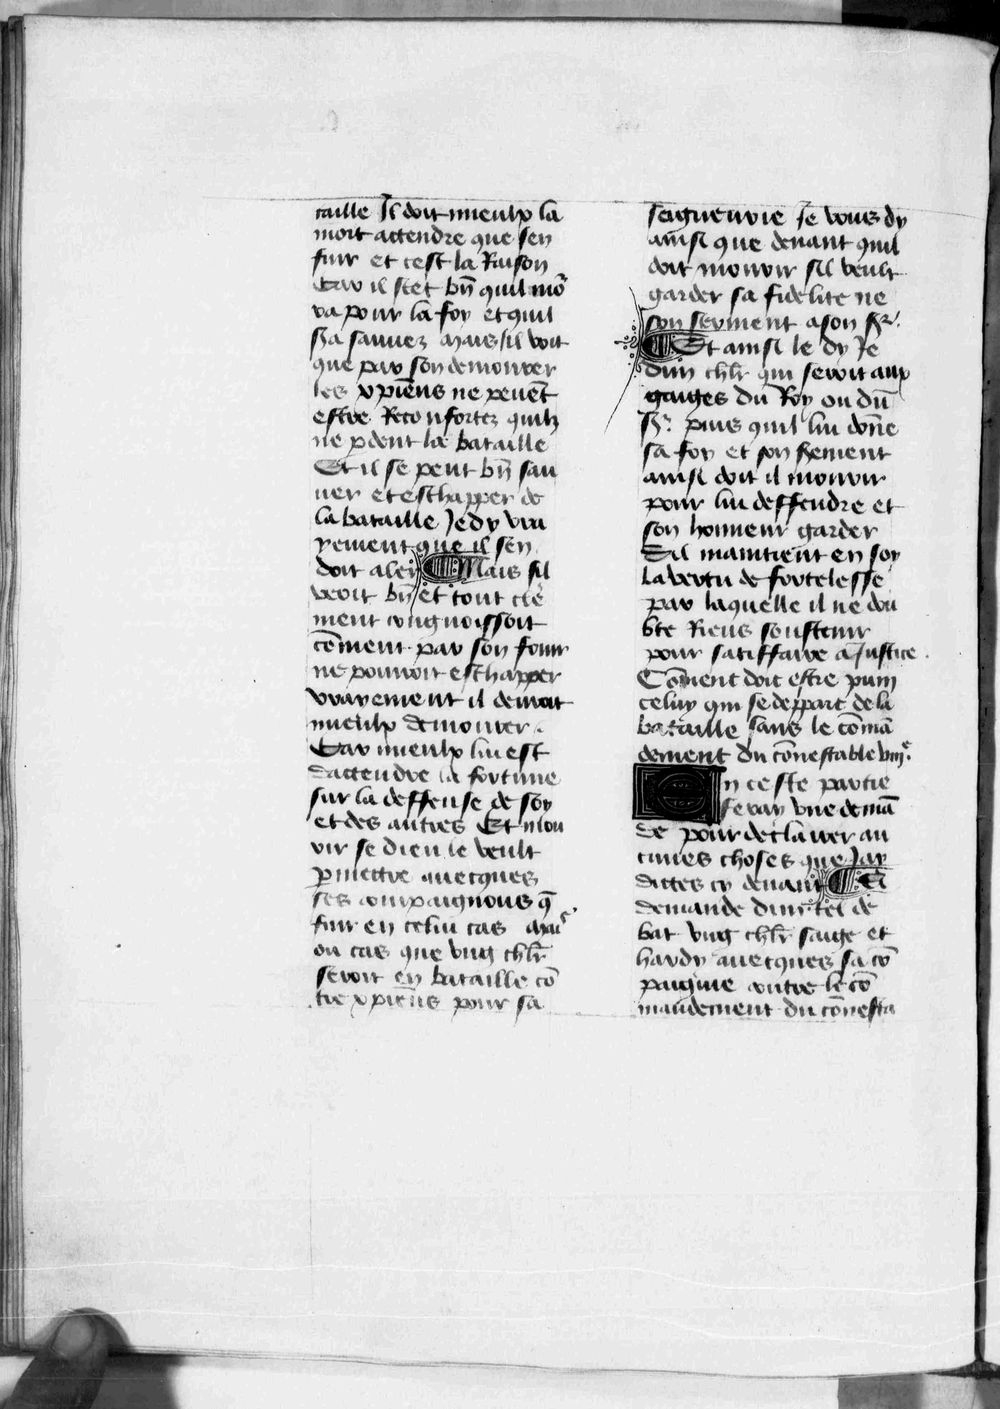 taille Il doit mieulx la
mort attendre que sen
fuir et cest la Raison
Car il scet bn̄ quil mo᷑
ra pour la foy et quil
sa sauuez mais sil voit
que par son demourer
les xp̄iens ne peuēt
estre Reconfortez quilz
ne p̲dent la bataille
Et il se peut bn̄ sau
uer et eschapper de
la bataille Je dy vra
yement que il sen
doit aler Mais sil
veoit bn̄ et tout cle᷑
ment congnoissoit
cōment par son fouir
ne pouroit eschapper
vrayement il deuroit
mieulx demourer
Car mieulx lui est
dattendre la fortune
sur la deffense de soy
et des autres Et mou
rir se dieu le veult
p̲mettre auecques
ses compaignons q̄
fuir en celui cas mais
ou cas que vng chlr̄
seroit en bataille cō
tre xp̄iens pour sa
seigneurie Je vous dy
ainsi que deuant quil
doit mourir sil veult
garder sa fidelite ne
son serment a son sr̄.
Et ainsi le dy Je
dun chlr̄ qui seroit aux
gaiges du Roy ou dū
sr̄ puis quil lui dōne
sa foy et son serment
ainsi doit il mourir
pour lui deffendre et
son honneur garder
Sil maintient en soy
la vertu de fortelesse
par laquelle il ne dou
bte Riens soustenir
pour satiffaire a Justice
Cōment doit estre puni
celuy qui se deppart de la
bataille sans le cōmā
dement du cōnestable viij.e
En ceste partie
feray vne demā
de pour declairer au
cunes choses que Jay
dittes cy deuant Et
demande dun tel de
bat vng chlr̄ saige et
hardy auecques sa cō
paignie oultre le cō
mandement du cōnesta